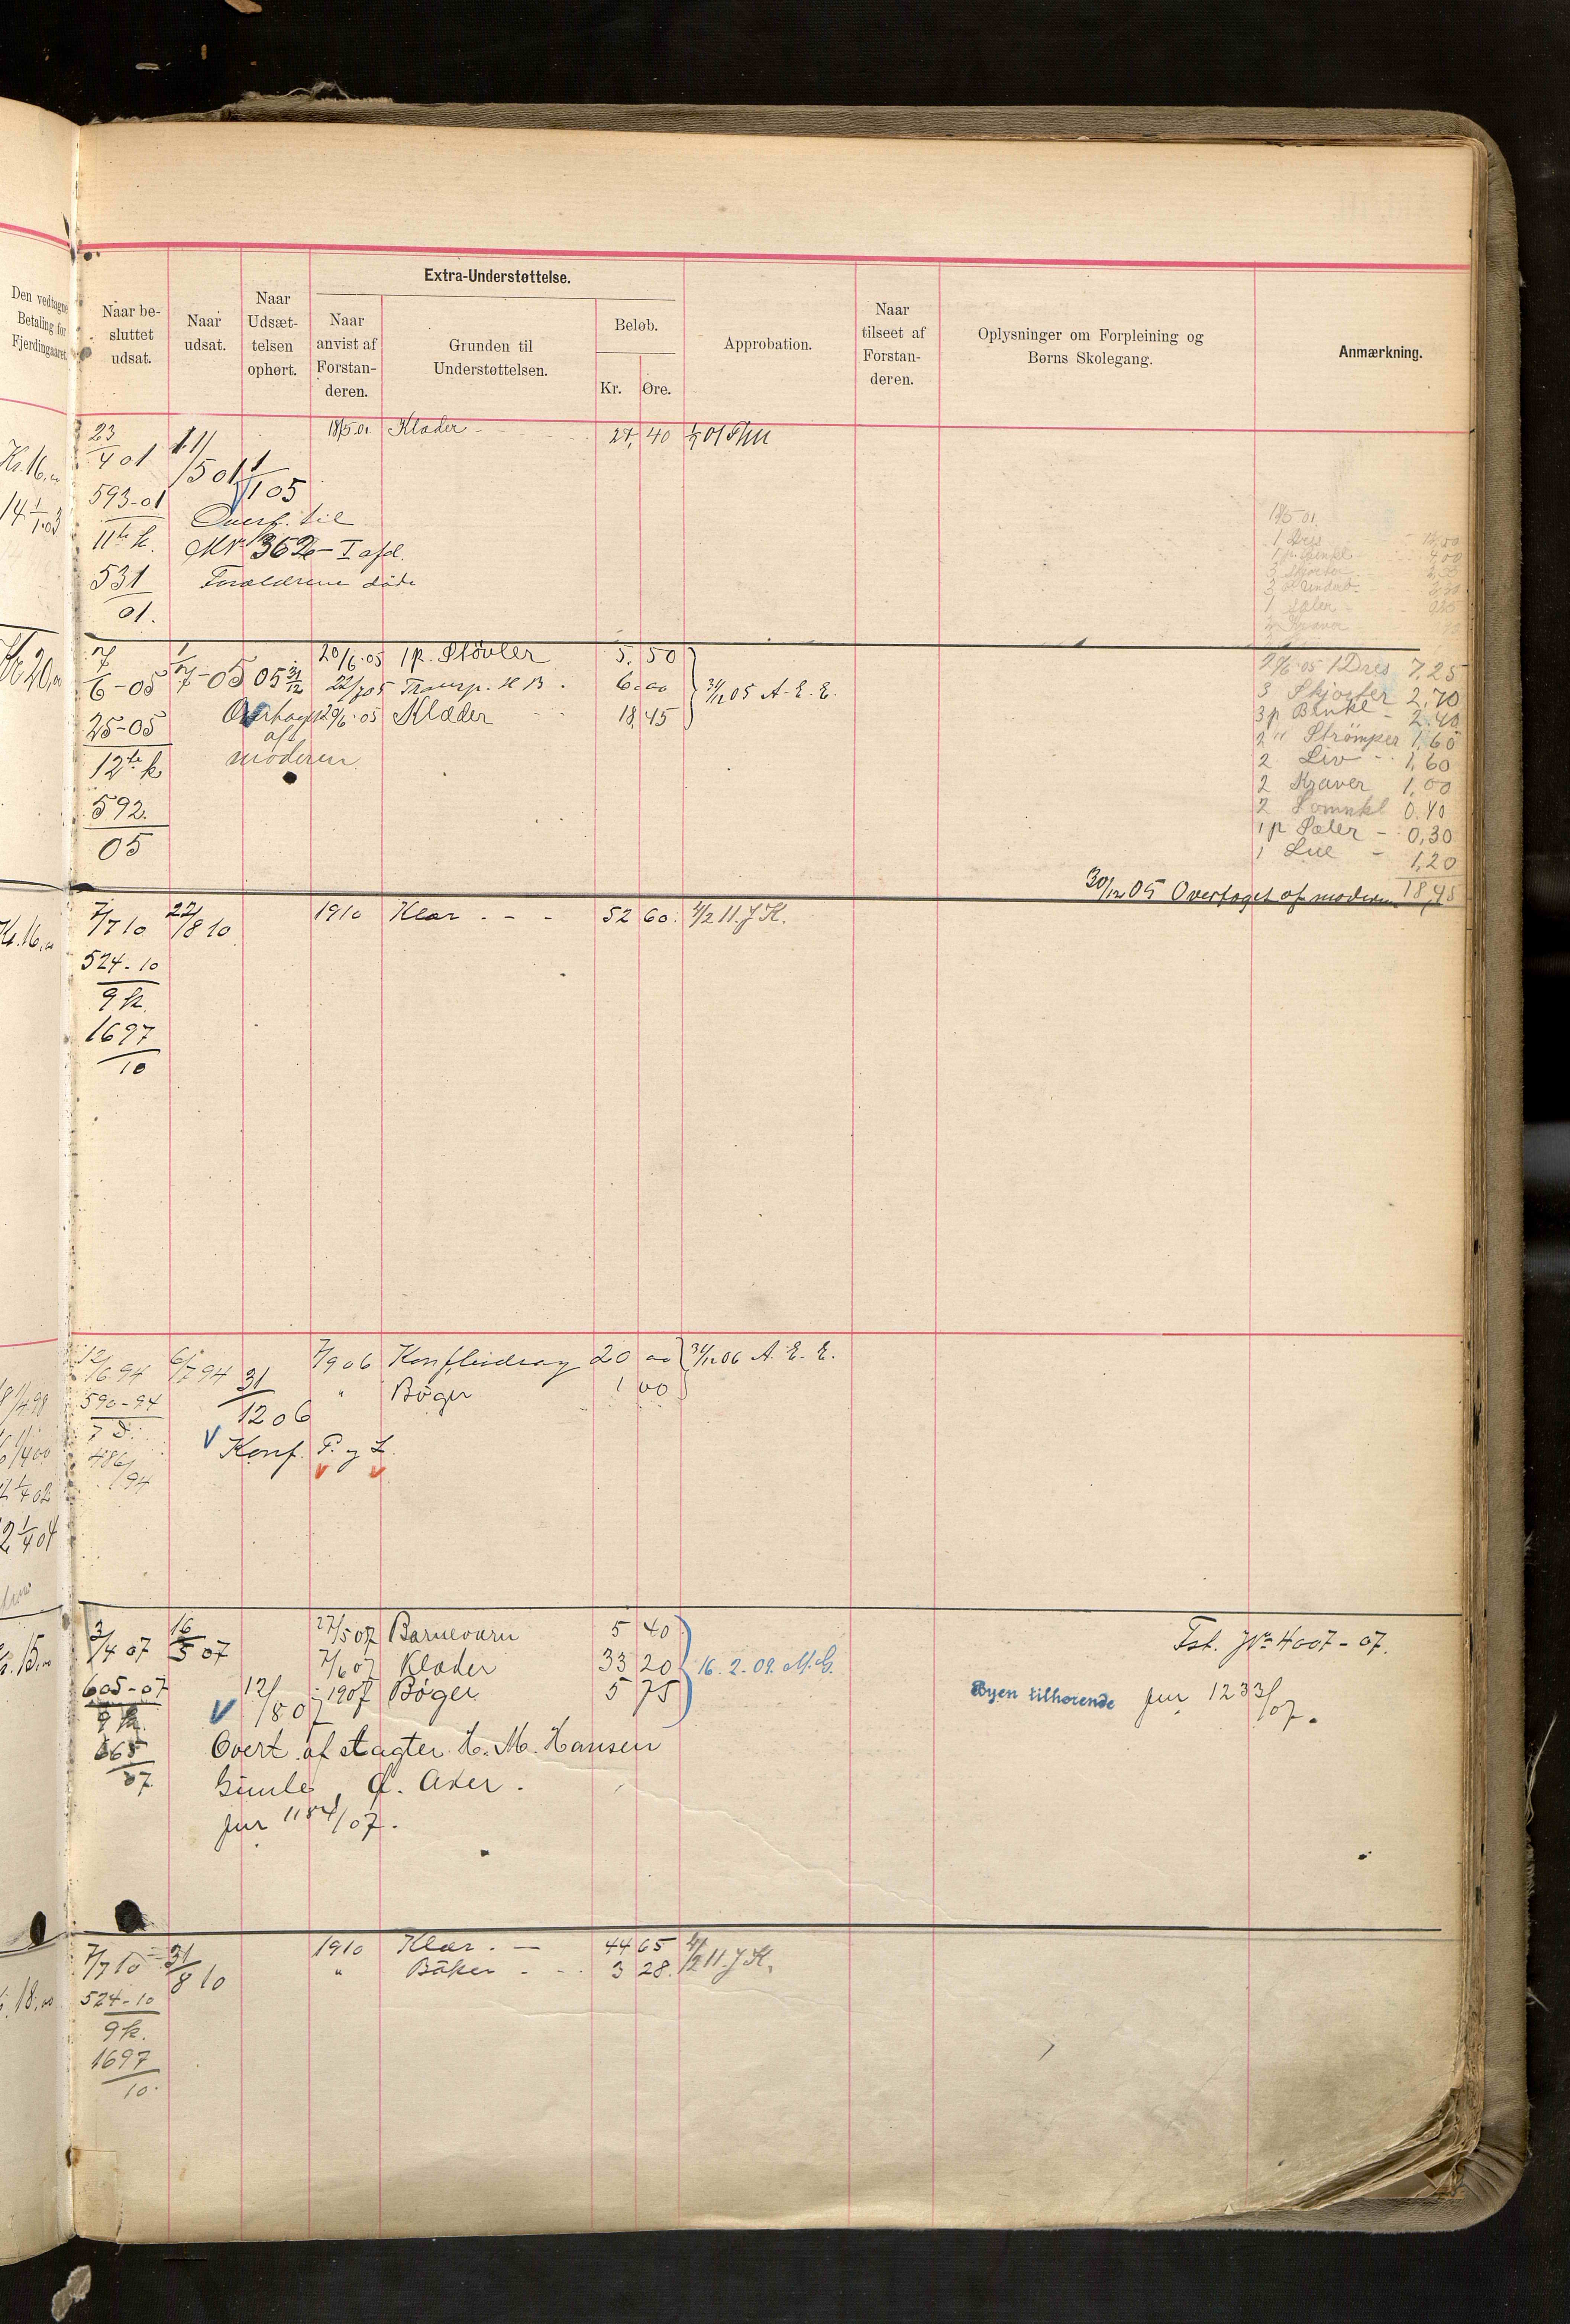 Den vedtagne
Betaling for
Fjerdingaaret.
Naar be-
sluttet
udsat.
Naar
udsat.
Naar
Udsæt-
telsen
ophørt.
Extra-Understøttelse.
Naar
anvist af
Forstan-
deren.
Grunden til
Understøttelsen.
Beløb.
Kr. Øre.
Approbation.
Naar
tilseet af
Forstan-
deren.
Oplysninger om Forpleining og
Børns Skolegang.
Anmærkning.
Kr. 16,00
23/4 01
593-01
11te k.
531
01.
11/5 01
1/1 05
Overf. til
Nr 362 - I afd.
Forældrene døde
18/5 01 Klæder - 27, 40
18/5 01.
1 Dres
7/6-05
25-05
12te k
592.
05
1/7-05 05 31/12
Overtaget
af
moderen
20/6 05 1 p. Støvler 5. 50
22/7 05 Transp. H B. 6.00
29/6 05 Klæder 18,45
31/12 05 A. E. E.
29/6 05 1 Dres 7,25
3 Skjorter 2.70
3 p Benkl - 2.40
2 " Strømper 1,60
2 Liv - 1,60
2 Kraver 1,00
2 Lomnkl 0.40
1 p Sæler - 0,30
1 Lue - 1,20
18,45
30/12 05 Overtaget af moderen
Kr. 16,00
7/7 10
524-10
9 k.
1697
10
22/8 10
1910 Klær. - - 52 60. 4/2 11. J K.
12/6 94
590-94
7 D.
486/
94
6/7 94
31/12 06
Konf. P. og L.
7/9 06 Konfbidrag 20 00
" Bøger 1 00
31/12 06 A. E. E.
3/4 07
605-07
9 k.
665
07
16/5 07
12/8 07
27/5 07 Barnevarn 5 40
7/6 07 Klæder 33 20
1907 Bøger 5 75
16. 2. 09. M. G.
Overt. af slagter H. M. Hansen
Gimle, Ø. Aker.
jur 1184/07.
Fst. No 4007-07.
Byen tilhørende jur 1233/07.
7/7 10
524-10
9 k.
1697
10.
31/8 10
1910 Klær. - 44 65
" Bøker - - 3 28.
4/2 11. J K.